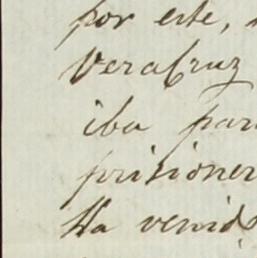 por este,
Veracruz
iba par
prisioner
Ha venid